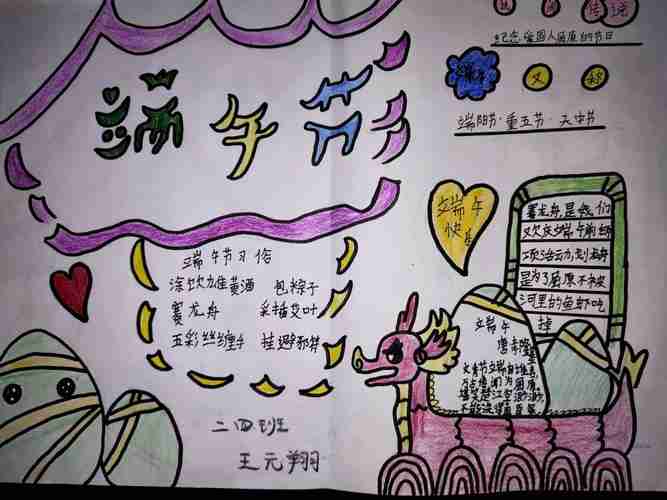 端午节
端午节习俗
涂饮雄黄酒 包粽子
赛龙舟 采插艾叶
五彩丝缠手 挂避邪符
二四班
王元翔
传说
纪念爱国人屈原的节日
端午 又 称
端阳节·重五节·天中节
端午
快
赛龙舟是我们
欢庆端午的
项活动划龙舟
是为了屈原不被
河里的鱼虾吃
掉
端午
唐
节分端午自
万古传闻为屈原
楚江空